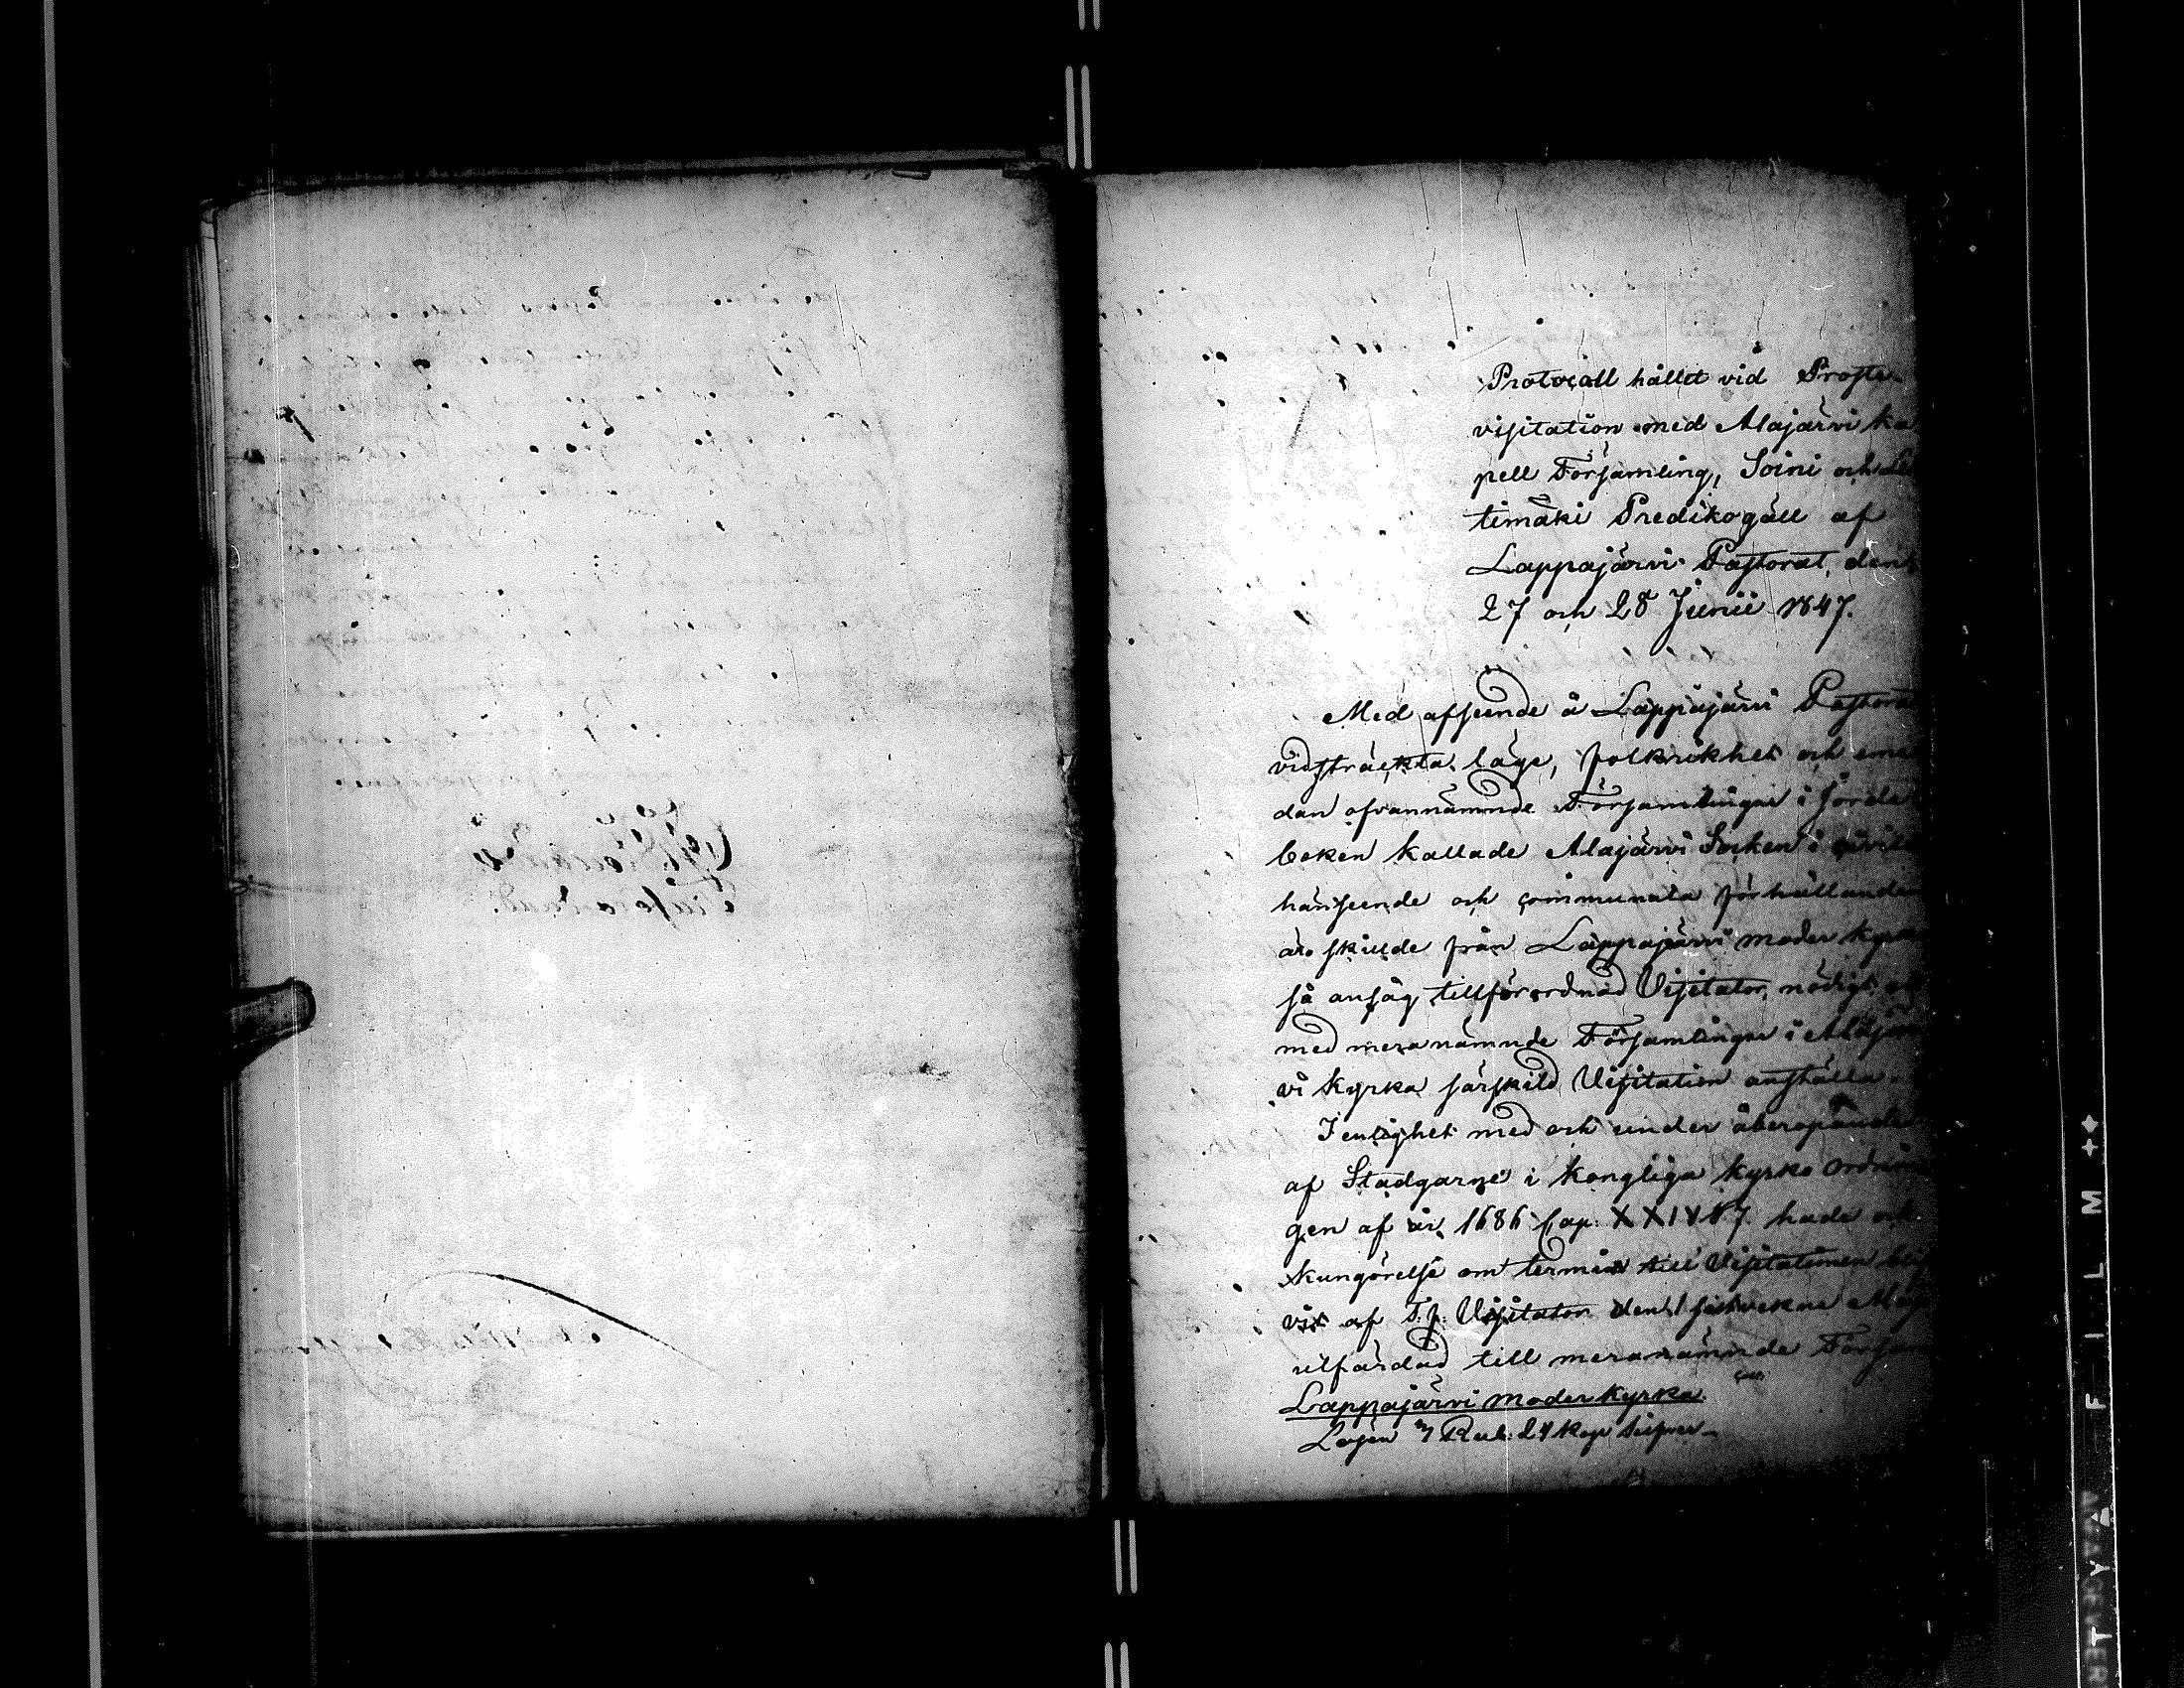 Protocoll hållet vid Proste-
visitation med Alajärvi Ka
pell Församling, Soini och Le
timäki Predikogäll af
Lappajärvi Pastorat, den
27 och 28 Junii 1847.
Med afseende å Lappajärvi Pastora
vidsträckta läge, folkrikhet och eme
dan ofvannämnde Församlingar i Jorde
boken kallade Alajärvi Socken i civilt
hänseende och communala förhållanden
äro skillde från Lappajärvi moder kyrka
så ansåg tillförordnad Visitator, nödigt att
med meranämnde Församlingar i Alajär
vi kyrka särskild Visitation anställa.
I enlighet med och under åberopande
af Stadgarne i Kongliga Kyrko Ordnin
gen af år 1686 Cap. XXIV § 7. hade och
kungörelse om termin till Visitationen bli
vit af T.f. Visitator den 1 sistvekne Maj
utfärdad till meranämnde Försam
Lappajärvi moder kyrka
Lösen 7 Rub. 24 Kop Silfver
F I L M